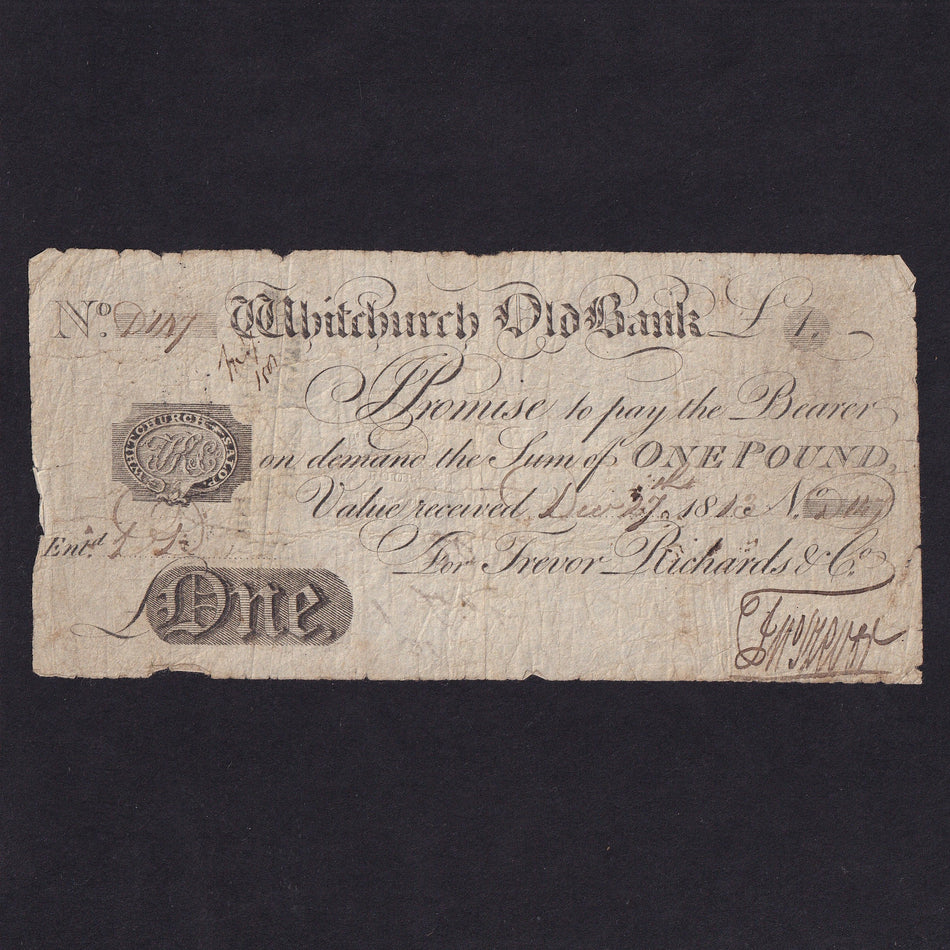 No. D147 Whitchurch Old Bank £1.
I Promise to pay the Bearer
WHITCHURCH SALOP.
on demand the Sum of ONE POUND,
Value received Decr 27th 1813 No. D147
Entd
For Trevor Richards & Co.
£ One
Jno Trevor